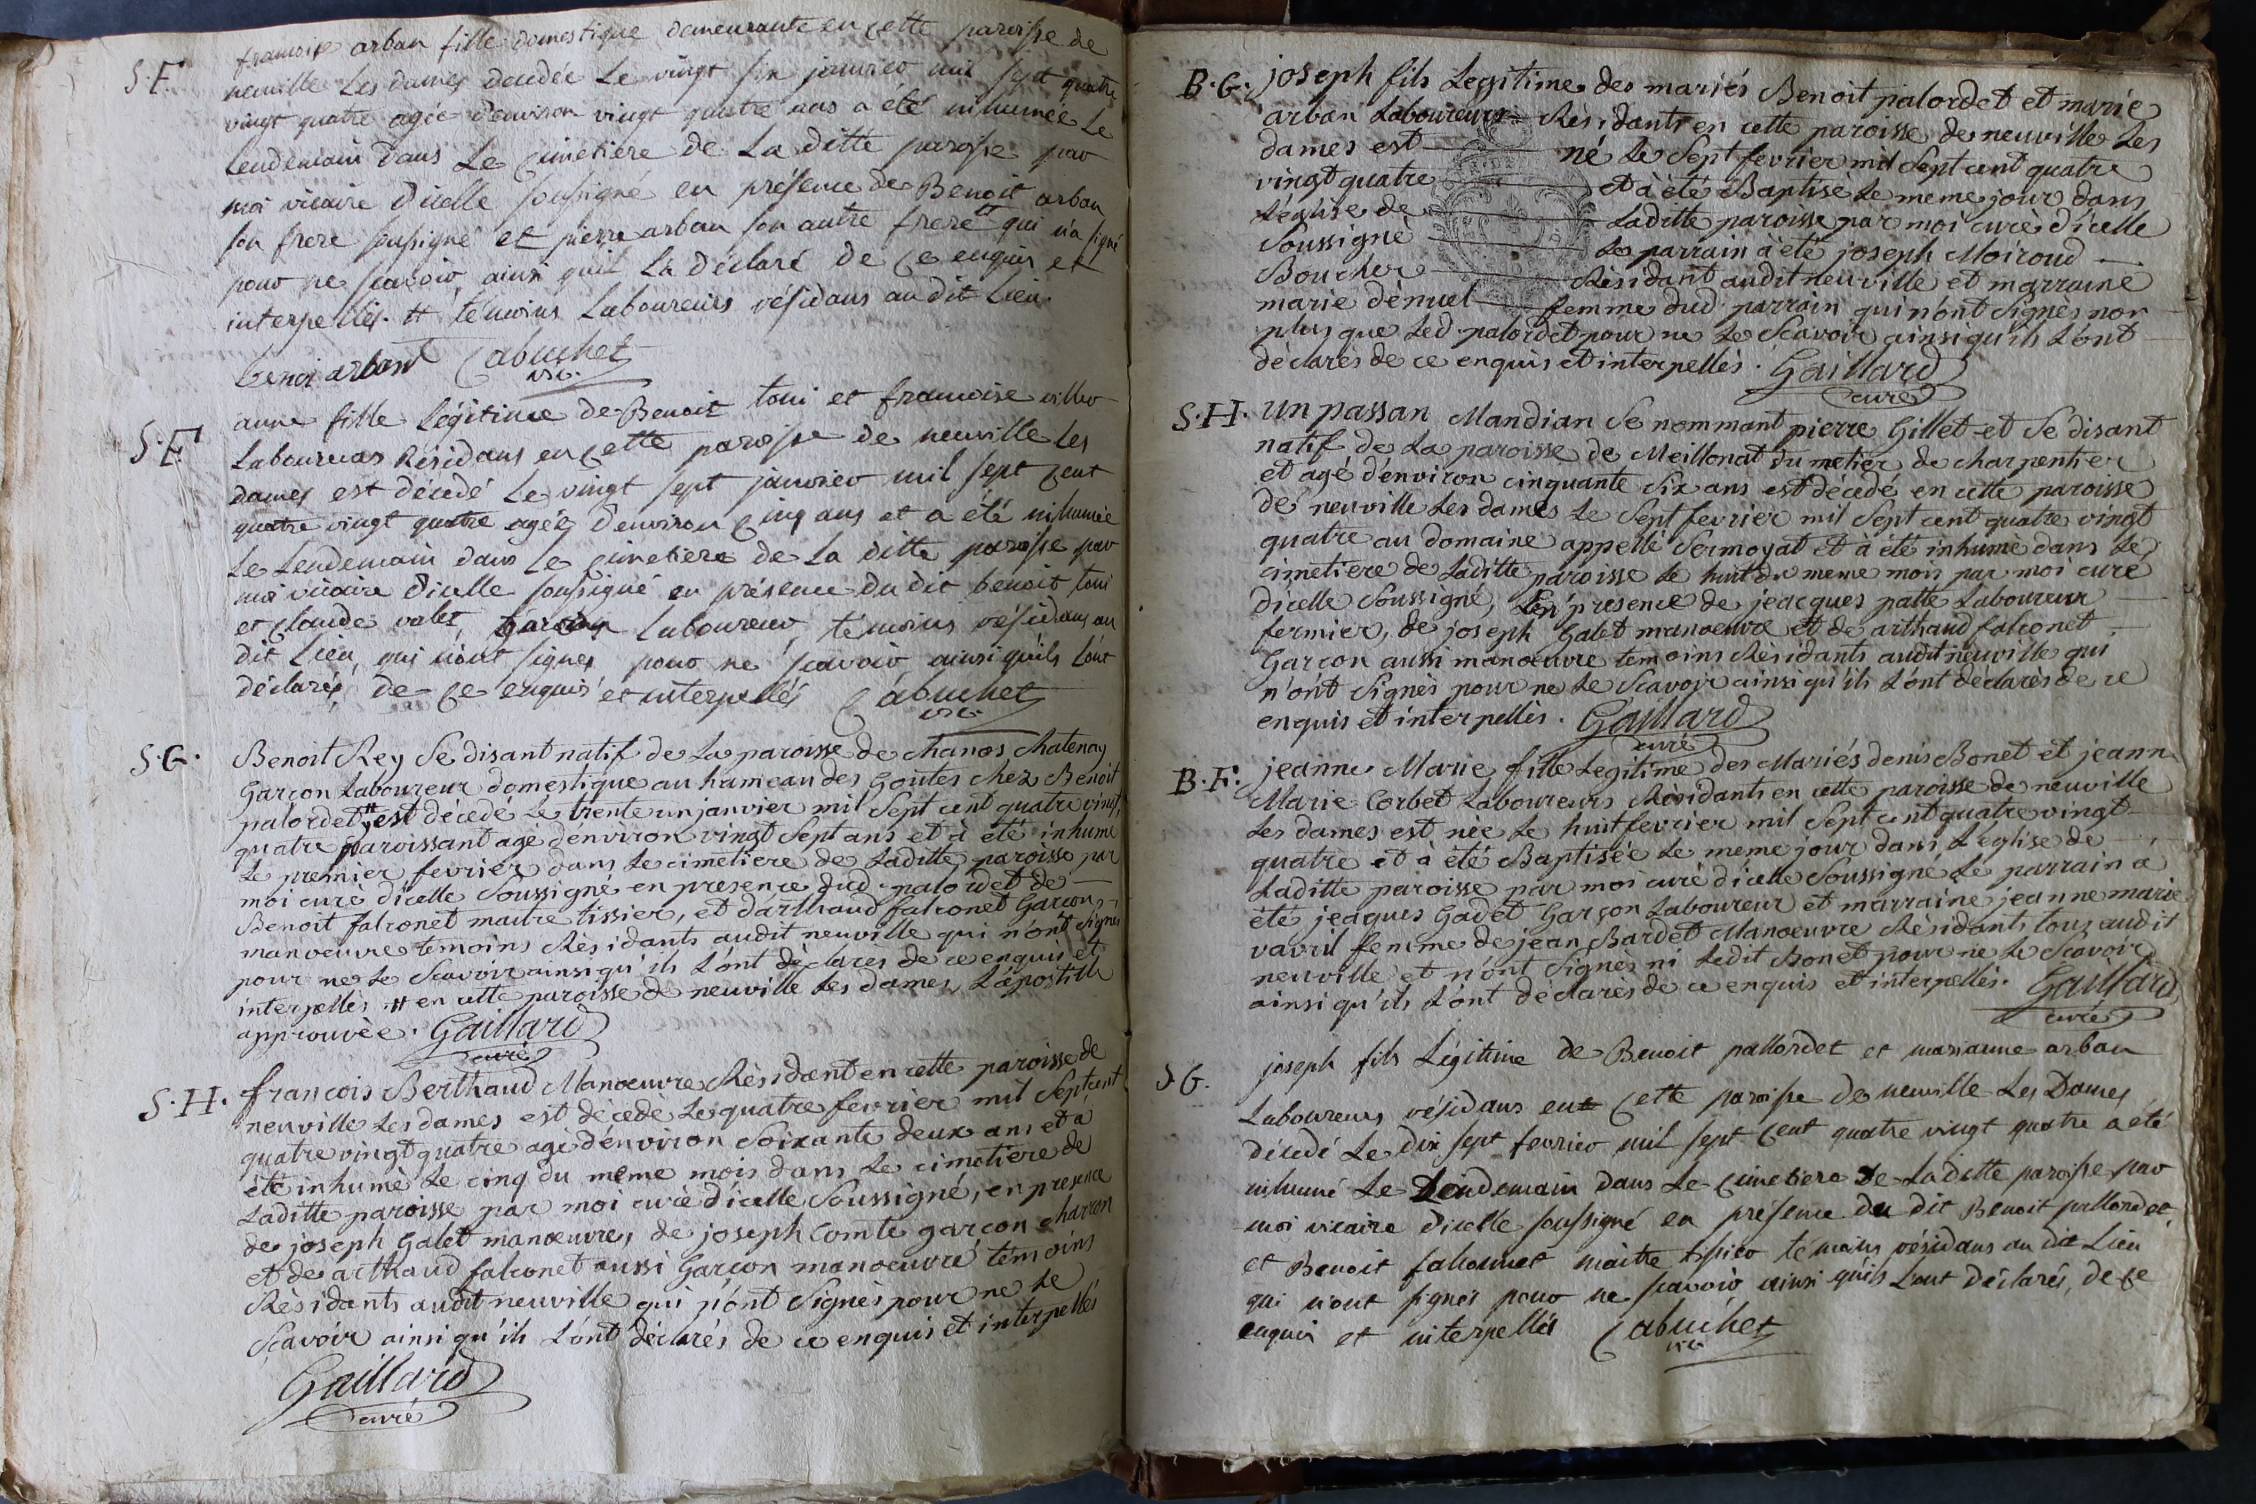 S.F. francoise arban fille domestique demeurante en cette paroisse de
neuville Les dames decedée Le vingt six janvier mil sept quatre
vingt quatre agée d'environ vingt quatre ans a été inhumée Le
Lendemain dans Le cimetiere de La ditte paroisse par
moi vicaire d'icelle soussigné en présence de Benoit arban
son frere soussigné et pierre arban son autre frere # qui n'a signé
pour ne scavoir ainsi qu'il L'a déclaré de ce enquis et
interpellés. # témoins Laboureurs résidans au dit Lieu.
benoi arban Cabuchet
vic.
S.F. anne fille Légitime de Benoit toni et francoise viller
Laboureurs Résidans en cette paroisse de neuville Les
dames est décedé Le vingt sept janvier mil sept cent
quatre vingt quatre agée d'environ cinq ans et a été inhumée
Le Lendemain dans Le cimetiere de La ditte paroisse par
moi vicaire d'icelle soussigné en présence du dit benoit toni
et claude valet garcon Laboureur, témoins résidans au
dit Lieu qui n'ont signés pour ne scavoir ainsi qu'ils L'ont
déclarés, de ce enquis et interpellés Cabuchet
vic.
S.G. Benoit Rey Se disant natif de La paroisse de chanos chatenay
Garcon Laboureur domestique au hameau des Goutes chez Benoit
palordet # est décedé Le trente un janvier mil Sept cent quatre vingt
quatre paroissant agé d'environ vingt Sept ans et à été inhumé
Le premier fevrier dans Le cimetiere de Laditte paroisse par
moi curé d'icelle Soussigné en presence dud. palordet de
Benoit falconet maitre tissier, et d'arthaud falconet Garcon
manoeuvre temoins Résidants audit neuville qui n'ont Signés
pour ne Le Scavoir ainsi qu'ils L'ont déclarés de ce enquis et
interpellés # en cette paroisse de neuville Les dames, L'apostille
approuvée. Gaillard
curé
S.H. francois Berthaud Manoeuvre Résidant en cette paroisse de
neuville Les dames est décedé Le quatre fevrier mil Sept cent
quatre vingt quatre agé d'environ Soixante deux ans et à
été inhumé Le cinq du meme mois dans Le cimetiere de
Laditte paroisse par moi curé d'icelle Soussigné, en presence
de joseph Galet manoeuvre, de joseph Comte garcon charron
et de arthaud falconet aussi Garcon manoeuvre témoins
Résidants audit neuville qui n'ont Signés pour ne Le
Scavoir ainsi qu'ils L'ont déclarés de ce enquis et interpellés
Gaillard
curé
B.G. joseph fils Legitime des mariés Benoit palordet et marie
arban Laboureurs Résidants en cette paroisse de neuville Les
dames est né Le Sept fevrier mil Sept cent quatre
vingt quatre et à été Baptisé Le meme jour dans
L'eglise de Laditte paroisse par moi curé d'icelle
Soussigné Le parrain a été joseph Moiroud
Boucher Résidant audit neuville et marraine
marie dénuel femme dud. parrain qui n'ont Signés non
plus que Led. palordet pour ne Le Scavoir ainsi qu'ils L'ont
déclarés de ce enquis et interpellés. Gaillard
curé
S.H. Un passan Mandian Se nommant pierre Gillet et Se disant
natif de La paroisse de Meillonat du metier de charpentier
et agé d'environ cinquante Six ans est décedé en cette paroisse
de neuville Les dames Le Sept fevrier mil Sept cent quatre vingt
quatre au domaine appellé Sermoyat et à été inhumé dans Le
cimetiere de Laditte paroisse Le huit du meme mois par moi curé
d'icelle Soussigné, En presence de jeacques patte Laboureur
fermier, de joseph Galet manoeuvre et de arthaud falconet
Garcon aussi manoeuvre temoins Résidants audit neuville qui
n'ont Signés pour ne Le Scavoir ainsi qu'ils L'ont déclarés de ce
enquis et interpellés. Gaillard
curé
B.F. jeanne Marie fille Legitime des Mariés denis Bonet et jeanne
Marie Corbet Laboureurs Résidants en cette paroisse de neuville
Les dames est née Le huit fevrier mil Sept cent quatre vingt
quatre et à été Baptisée Le meme jour dans L'eglise de
Laditte paroisse par moi curé d'icelle Soussigné Le parrain a
été jeacques Gadet Garçon Laboureur et marraine jeanne marie
vavril femme de jean Bardet Manoeuvre Résidants tous audit
neuville et n'ont Signés ni Ledit Bonet pour ne Le Scavoir
ainsi qu'ils L'ont déclarés de ce enquis et interpellés. Gaillard
curé
S.G. joseph fils Légitime de Benoit pallordet et marianne arban
Laboureurs résidans en cette paroisse de neuville Les Dames
décedé Le dix sept fevrier mil sept cent quatre vingt quatre a été
inhumé Le Lendemain dans Le cimetiere de La ditte paroisse par
moi vicaire d'icelle soussigné en présence du dit Benoit pallordet
et Benoit falconnet maitre tissier témoins résidans au dit Lieu
qui n'ont signés pour ne scavoir ainsi qu'ils L'ont déclarés, de ce
enquis et interpellés Cabuchet
vic.